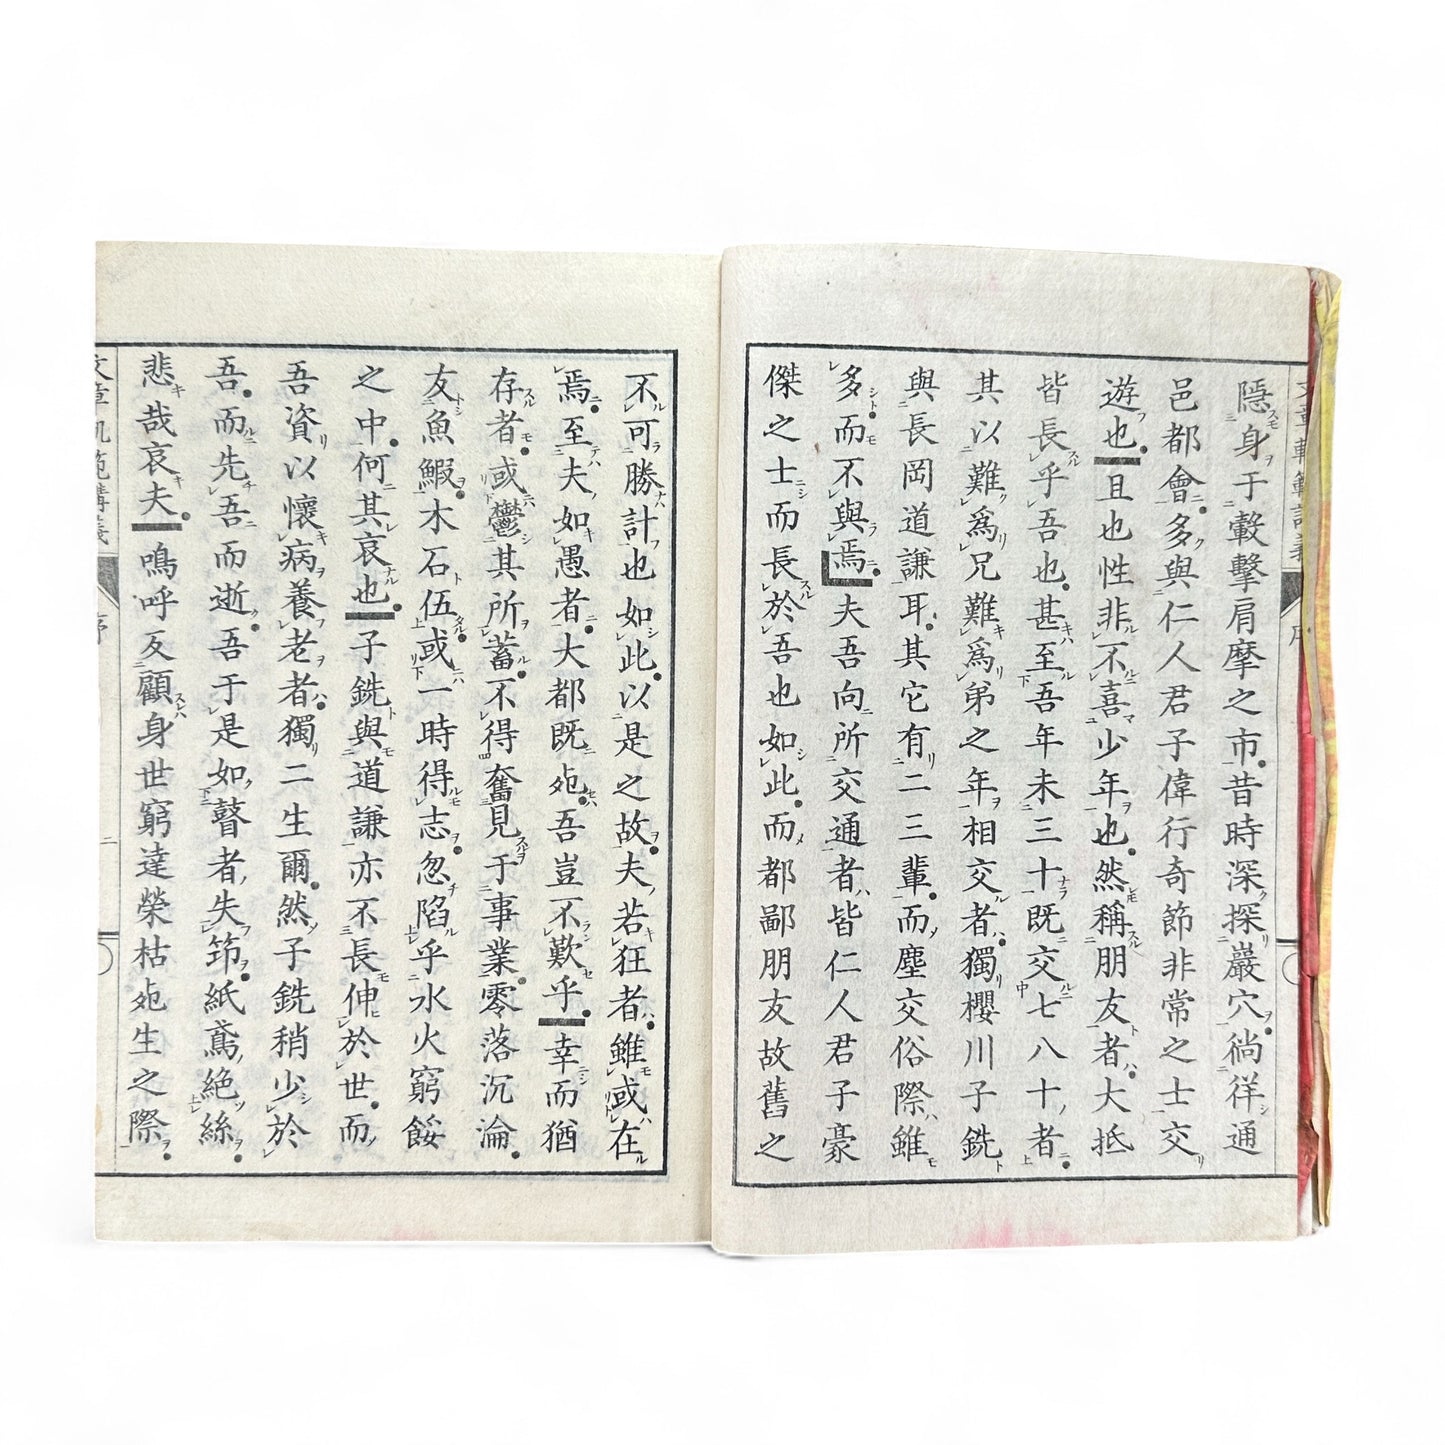 隱身于轂擊肩摩之市昔時深探巖穴徜徉通
邑都會多與仁人君子偉行奇節非常之士交
遊也且也性非不喜少年也然稱朋友者大抵
皆長乎吾也甚至吾年未三十既交七八十者
其以難爲兄難爲弟之年相交者獨櫻川子銑
與長岡道謙耳其它有二三輩而塵交俗際雖
多而不與焉夫吾向所交通者皆仁人君子豪
傑之士而長於吾也如此而都鄙朋友故舊之
不可勝計也如此以是之故夫若狂者雖或在
焉至夫如愚者大都既逝吾豈不歎乎幸而猶
存者或鬱其所蓄不得奮見于事業零落沉淪
友魚鰕木石伍或一時得志忽陷乎水火窮餒
之中何其哀也子銑與道謙亦不長伸於世而
吾資以懷病養老者獨二生爾然子銑稍少於
吾而先吾而逝吾于是如瞽者失笻紙鳶絶絲
悲哉哀夫嗚呼反顧身世窮達榮枯死生之際
序
二